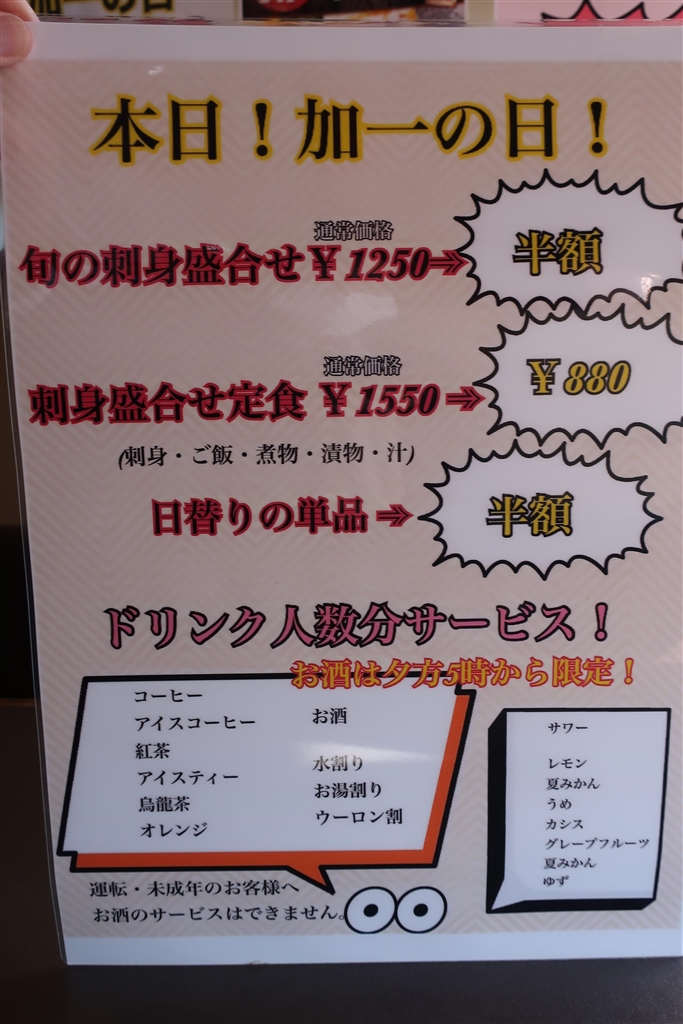 加一の日
本日！加一の日！
通常価格
旬の刺身盛合せ￥1250⇒
半額
通常価格
刺身盛合せ定食 ￥1550⇒
￥880
(刺身・ご飯・煮物・漬物・汁)
日替りの単品⇒
半額
ドリンク人数分サービス！
お酒は夕方5時から限定！
コーヒー
アイスコーヒー
紅茶
アイスティー
烏龍茶
オレンジ
お酒
水割り
お湯割り
ウーロン割
サワー
レモン
夏みかん
うめ
カシス
グレープフルーツ
夏みかん
ゆず
運転・未成年のお客様へ
お酒のサービスはできません。